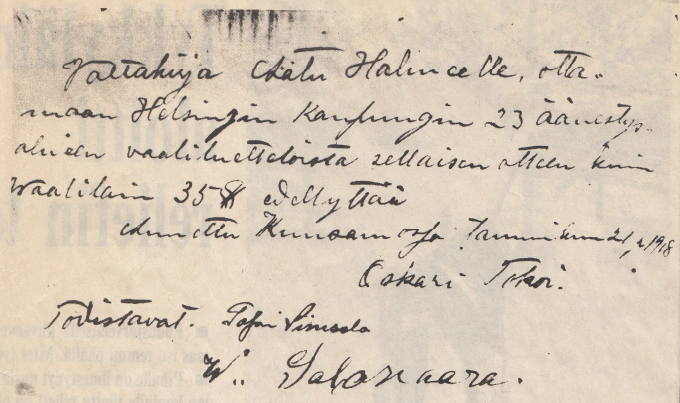 Valtakirja Aatu Halmeelle, otta-
maan Helsingin Kaupungin 23 äänestys-
alueen vaaliluetteloista sellaisen otteen kuin
Vaalilain 35 § edellyttää
Annettu tammikuun 21 p. 1918
Oskari Tokoi.
Todistavat.
W. Salovaara.